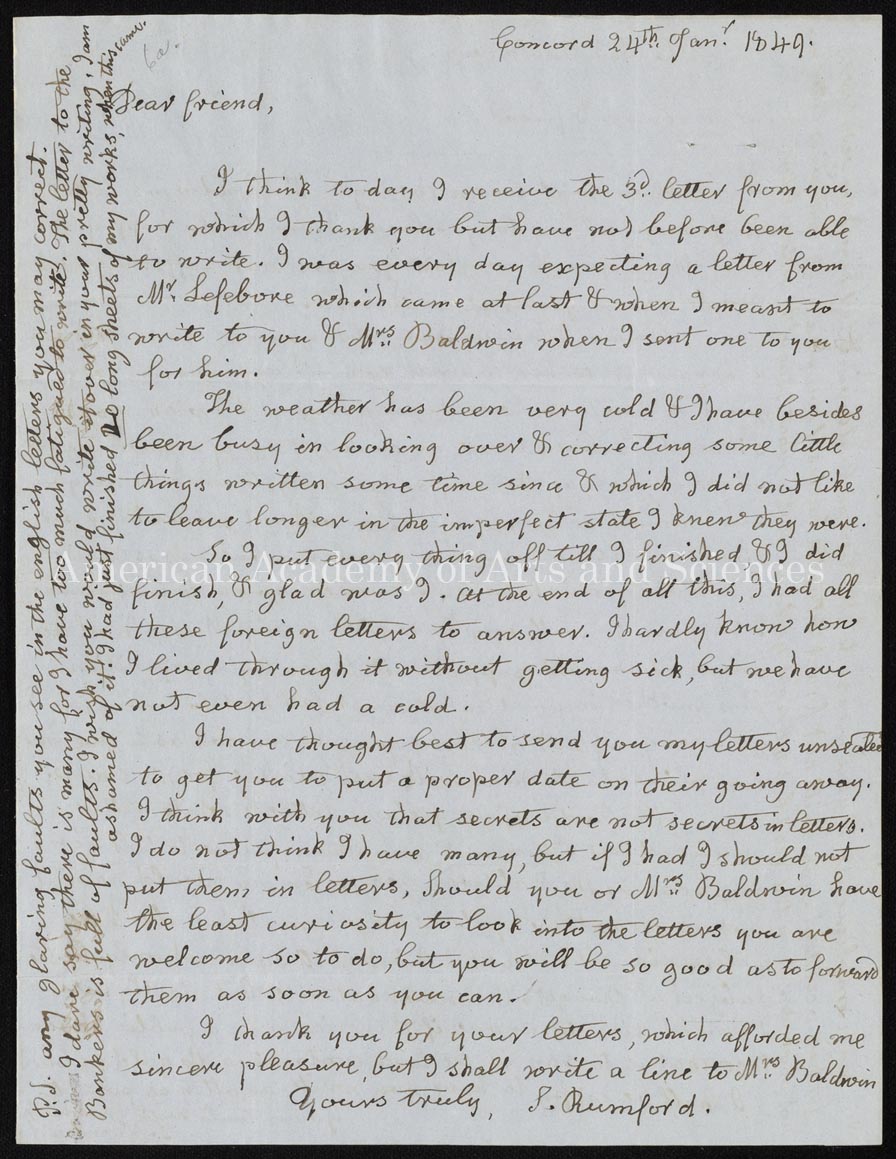 Concord 24th Jany 1849.
Dear friend,
I think to day I receive the 3d. letter from you,
for which I thank you but have not before been able
to write. I was every day expecting a letter from
Mr. Lefebore which came at last & when I meant to
write to you & Mrs. Baldwin when I sent one to you
for him.
The weather has been very cold & I have besides
been busy in looking over & correcting some little
things written some time since & which I did not like
to leave longer in the imperfect state I knew they were.
So I put every thing off till I finished, & I did
finish, & glad was I. At the end of all this, I had all
these foreign letters to answer. I hardly know how
I lived through it without getting sick, but we have
not even had a cold.
I have thought best to send you my letters unsealed
to get you to put a proper date on their going away.
I think with you that secrets are not secrets in letters.
I do not think I have many, but if I had I should not
put them in letters, Should you or Mrs. Baldwin have
the least curiosity to look into the letters you are
welcome so to do, but you will be so good as to forward
them as soon as you can.
I thank you for your letters, which afforded me
sincere pleasure, but I shall write a line to Mrs. Baldwin
Yours truly, S. Rumford.
P.S. any glaring faults you see in the english letters you may correct.
I dare say there is many for I have too much fatigued to write. The letter to the
Bankers is full of faults. I wish you would write it over in your pretty writing, I am
ashamed of it. I had just finished long sheets of my works, when this came.
American Academy of Arts and Sciences